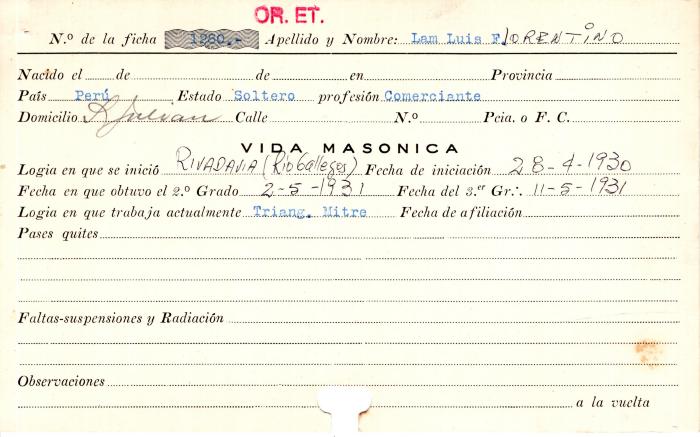 OR. ET.
N.º de la ficha 1280.- Apellido y Nombre: Lam Luis FLORENTINO
Nacido el de de en Provincia
País Perú Estado Soltero profesión Comerciante
Domicilio Julian Calle N.º Pcia. o F. C.
VIDA MASONICA
Logia en que se inició RIVADAVIA (Rio Gallegos) Fecha de iniciación 28-4-1930
Fecha en que obtuvo el 2.º Grado 2-5-1931 Fecha del 3.er Gr∴ 11-5-1931
Logia en que trabaja actualmente Triang. Mitre Fecha de afiliación
Pases quites
Faltas-suspensiones y Radiación
Observaciones
a la vuelta